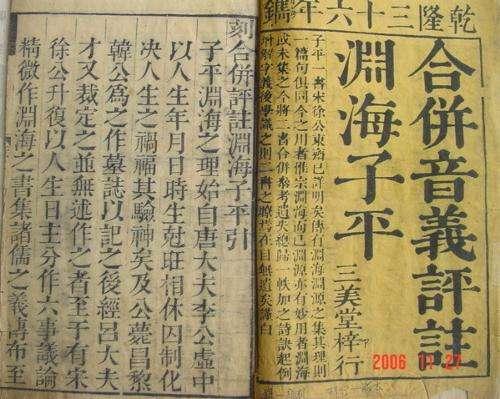 乾隆三十六年鐫
合併音義評註
淵海子平
三美堂梓行
子平一書宋徐公東齋已詳明矣傳有淵海淵源之集其理則
一篇句俱同今之用者惟宗淵海而已淵源亦有妙用者淵海
或未集之今將二書合併參考遺失總歸一帙加之詩訣起例
解字義後學識之則一書之在目無遺矣謹白
2006 11 27
刻合併評註淵海子平引
子平淵海之理始自唐大夫李公虛中
以人生年月日時生尅旺相休囚制化
決人生之禍福其驗神矣及公薨昌黎
韓公為之作墓誌以記之後經呂大夫
才又裁定之並無述作之者至于有宋
徐公升復以人生日主分作六事議論
精微作淵海之書集諸儒之義傳布至